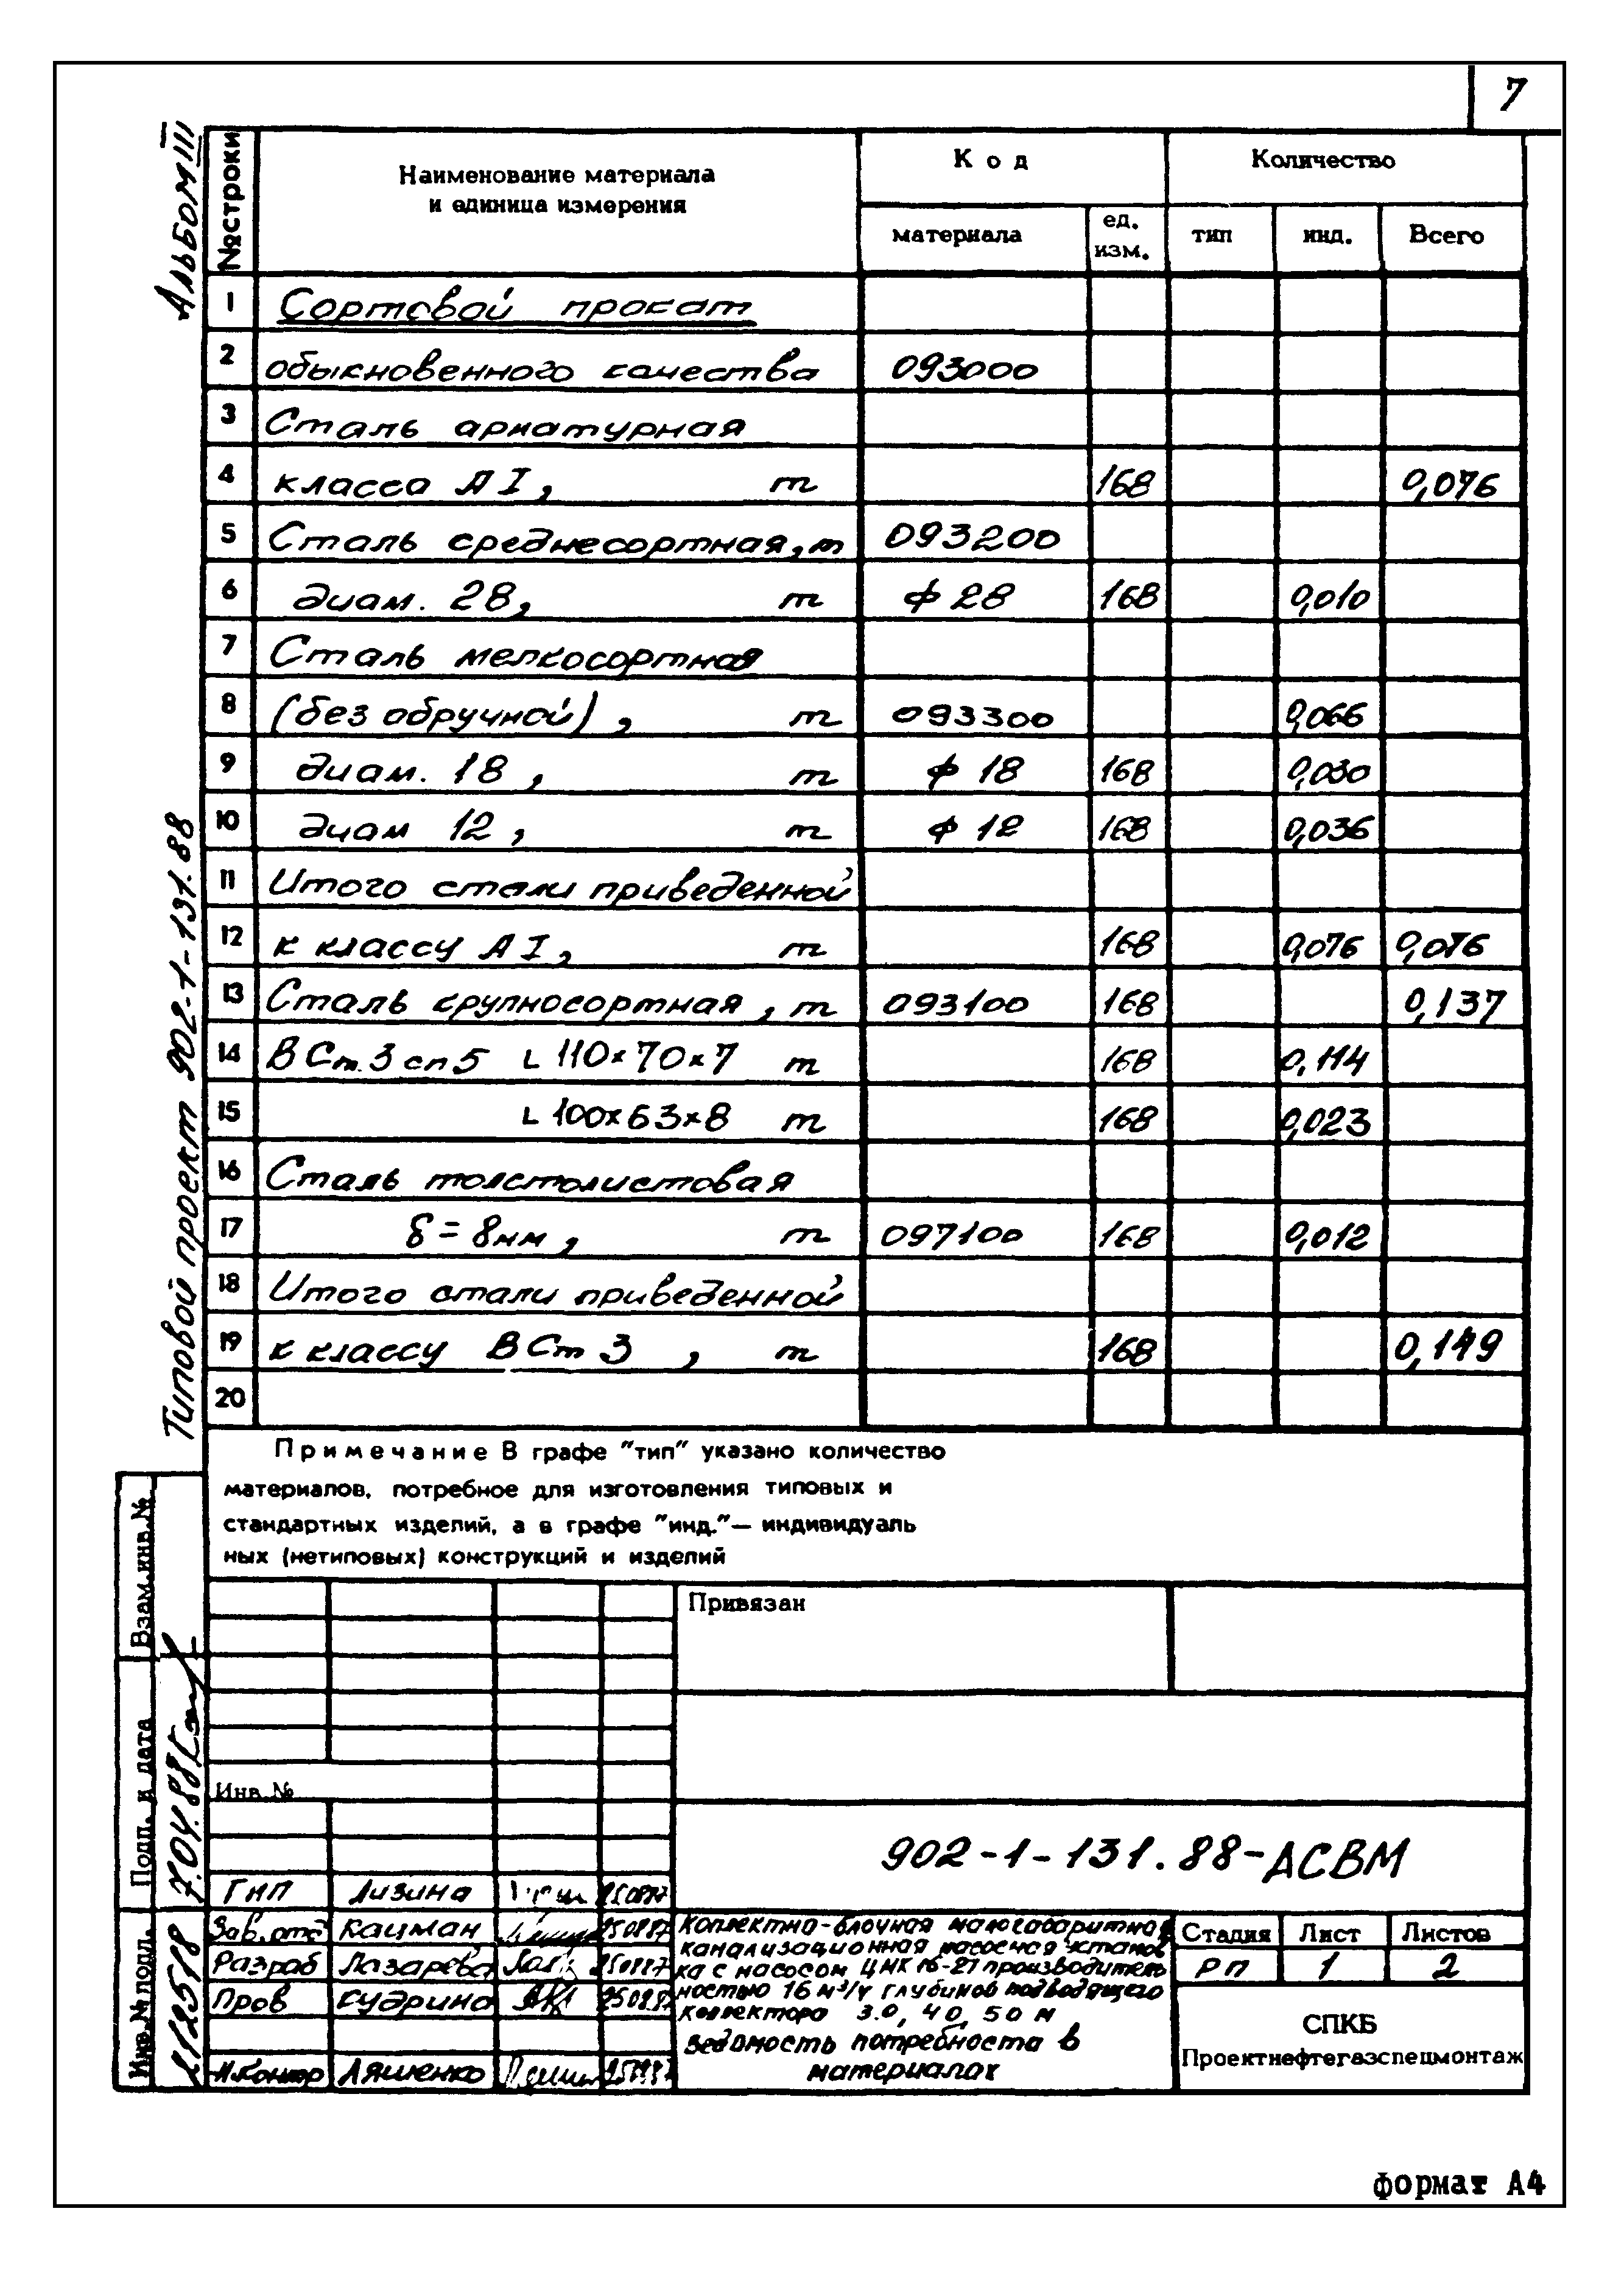 7
Альбом III
Типовой проект 902-1-131.88
№строки
Наименование материала
и единица измерения
Код
Количество
материала
ед.
изм.
тип
инд.
Всего
1 Сортовой прокат
2 обыкновенного качества 093000
3 Сталь арматурная
4 класса А I, т 168 0,076
5 Сталь среднесортная, т 093200
6 диам. 28, т ф 28 168 0,010
7 Сталь мелкосортная
8 (без обручной), т 093300 0,066
9 диам. 18, т ф 18 168 0,030
10 диам 12, т ф 12 168 0,036
11 Итого стали приведенной
12 к классу А I, т 168 0,076 0,076
13 Сталь крупносортная, т 093100 168 0,137
14 В Ст. 3 сп 5 L 110×70×7 т 168 0,114
15 L 100×63×8 т 168 0,023
16 Сталь толстолистовая
17 δ = 8мм, т 097100 168 0,012
18 Итого стали приведенной
19 к классу В Ст 3, т 168 0,149
20
Примечание В графе "тип" указано количество
материалов, потребное для изготовления типовых и
стандартных изделий, а в графе "инд."— индивидуаль
ных (нетиповых) конструкций и изделий
Взам.инв.№
Подп. и дата
7.04.88
Инв.№подл.
Привязан
Инв.№
902-1-131.88-АСВМ
ГИП Лизина
Зав.отд Кацман
Разраб Лазарева
Пров Кудрина
Н.Контр Ляшенко
Комлектно-блочная малогабаритная
канализационная насосная установ
ка с насосом ЦМК 16-27 производитель
ностью 16 м³/ч глубиной подводящего
коллектора 3.0, 4.0, 5.0 м
Ведомость потребности в
материалах
Стадия Лист Листов
РП 1 2
СПКБ
Проектнефтегазспецмонтаж
формат А4